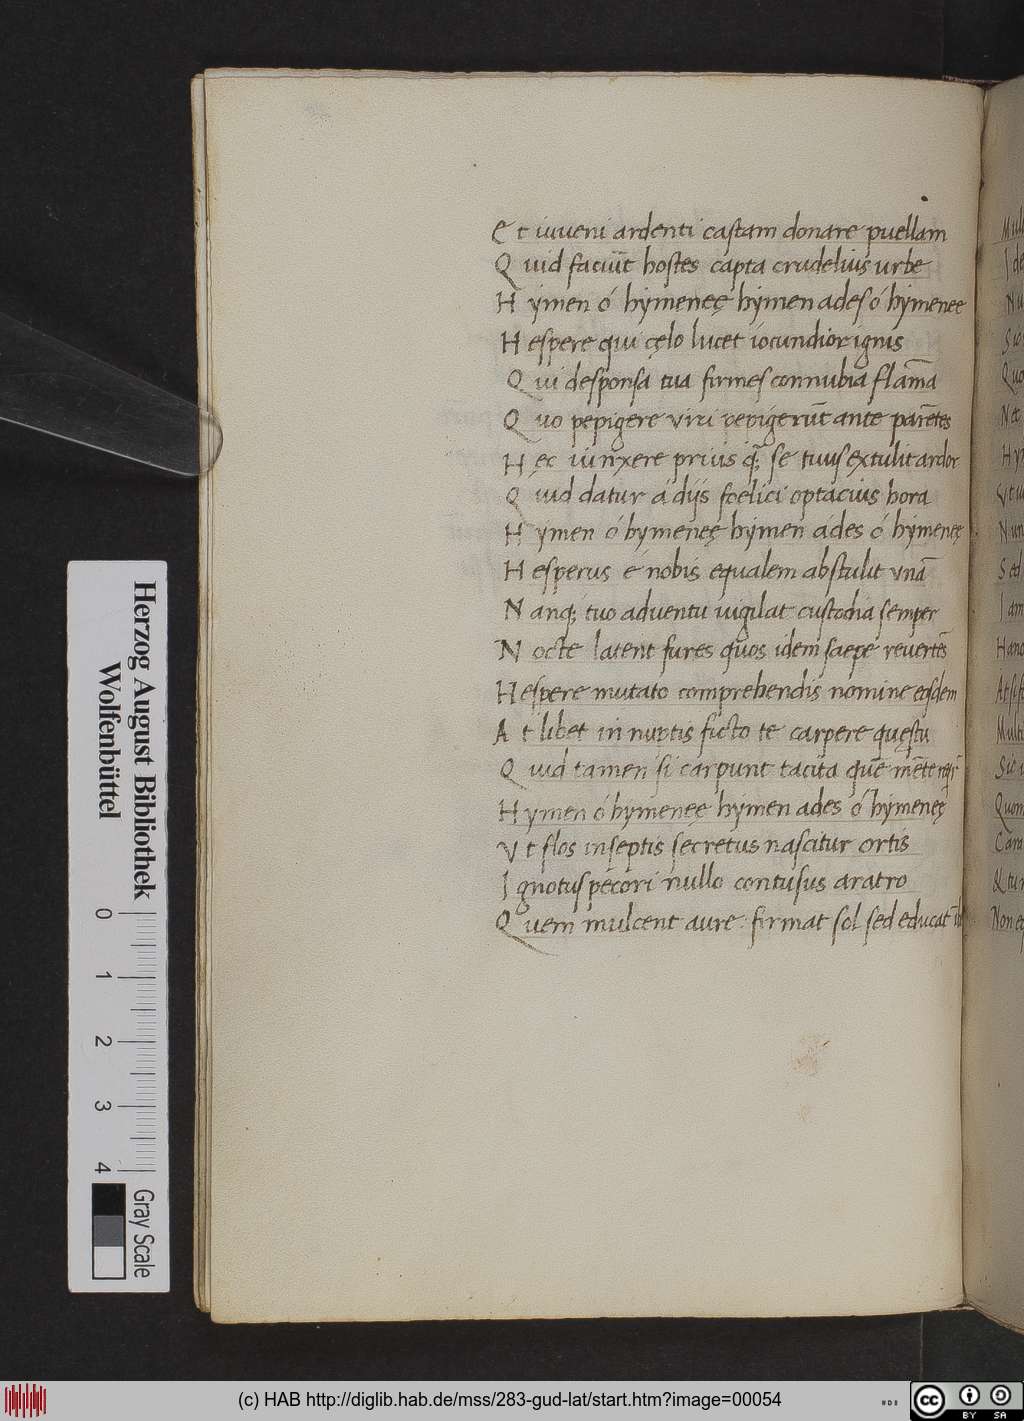 Et iuueni ardenti castam donare puellam
Quid faciūt hostes capta crudelius urbe
Hymen ó hymeneę hymen ades ó hymenee
Hespere qui cęlo lucet iocundior ignis
Qui desponsa tua firmes connubia flāma
Quo pepigere viri pepigerūt ante parētes
Hęc iunxere prius q̃ se tuus extulit ardor
Quid datur á dijs foelici optacius hora
Hymen ó hymeneę hymen ades ó hymeneę
Hesperus é nobis equalem abstulit vnā
Nanq; tuo aduentu uigilat custodia semper
Nocte latent fures quos idem saepe reuertēs
Hespere mutato comprehendis nomine eosdem
At libet innuptis ficto te carpere quęstu
Quid tamen si carpunt tacita quē mēte
Hymen ó hymenee hymen ades ó hymeneę
Vt flos in septis secretus nascitur ortis
Ignotus pecori nullo contusus aratro
Quem mulcent aure firmat sol sed educat
Herzog August Bibliothek
Wolfenbüttel
0 1 2 3 4
Gray Scale
(c) HAB http://diglib.hab.de/mss/283-gud-lat/start.htm?image=00054
cc BY SA